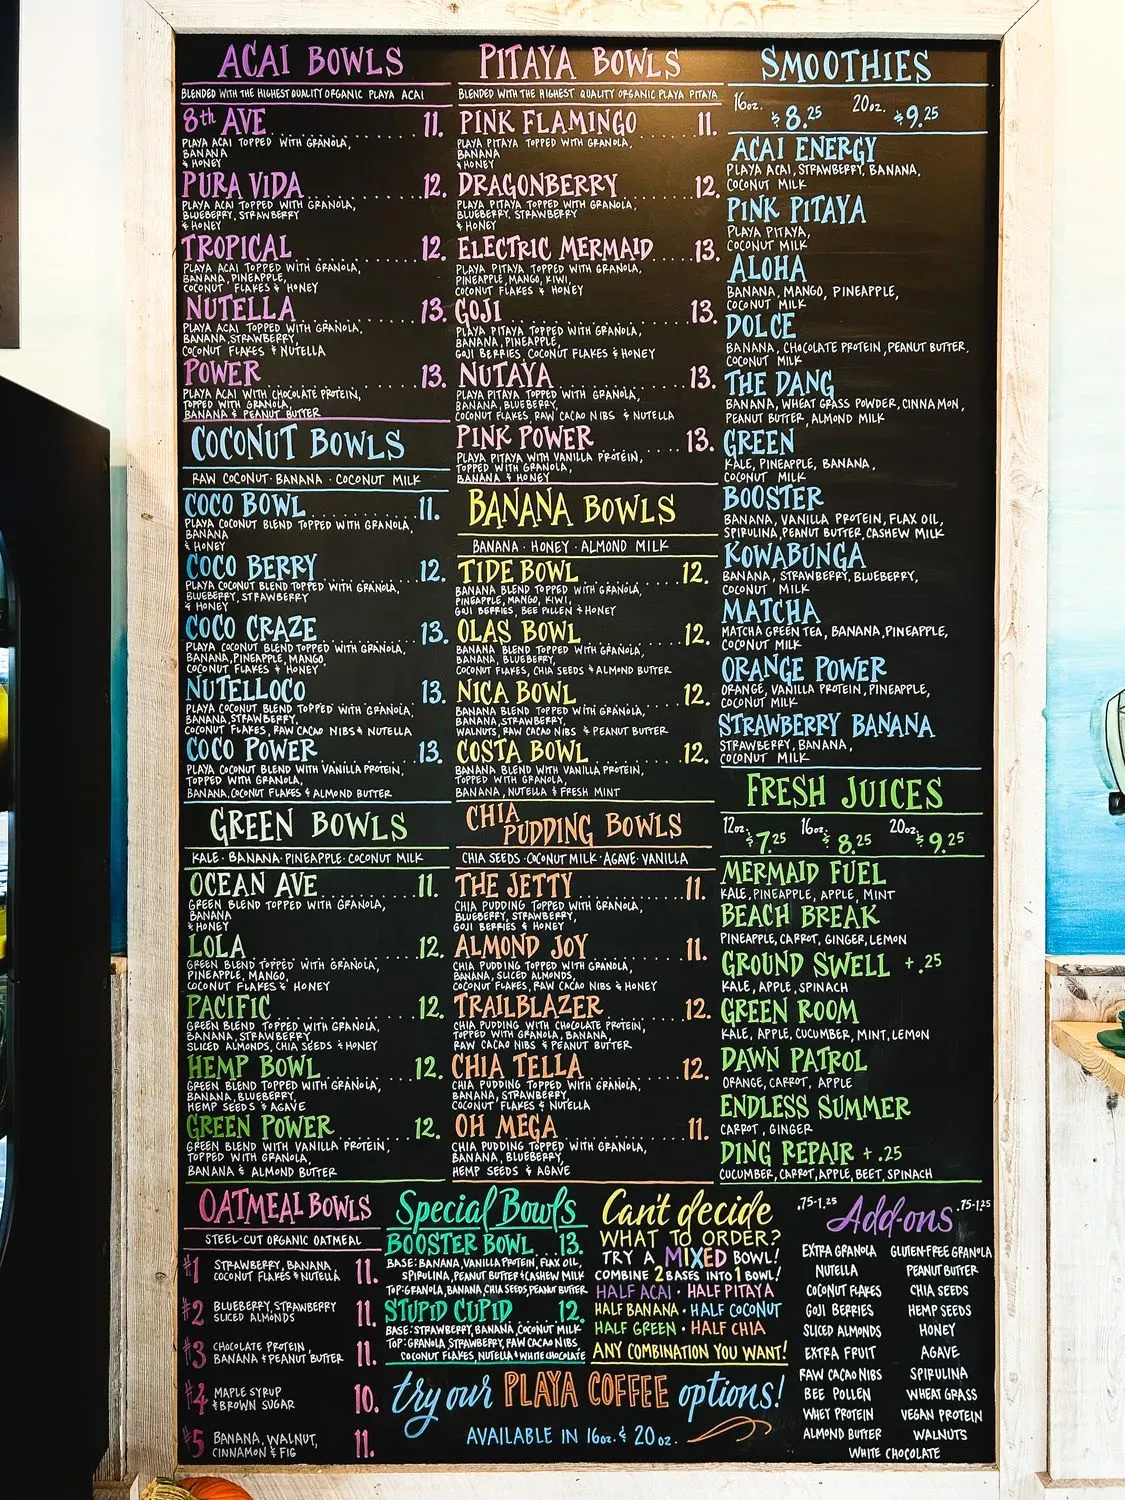 ACAI BOWLS
BLENDED WITH THE HIGHEST QUALITY ORGANIC PLAYA ACAI
8th AVE 11.
PLAYA ACAI TOPPED WITH GRANOLA,
BANANA
& HONEY
PURA VIDA 12.
PLAYA ACAI TOPPED WITH GRANOLA,
BLUEBERRY, STRAWBERRY
& HONEY
TROPICAL 12.
PLAYA ACAI TOPPED WITH GRANOLA,
BANANA, PINEAPPLE,
COCONUT FLAKES & HONEY
NUTELLA 13.
PLAYA ACAI TOPPED WITH GRANOLA,
BANANA, STRAWBERRY,
COCONUT FLAKES & NUTELLA
POWER 13.
PLAYA ACAI WITH CHOCOLATE PROTEIN,
TOPPED WITH GRANOLA,
BANANA & PEANUT BUTTER
COCONUT BOWLS
RAW COCONUT · BANANA · COCONUT MILK
COCO BOWL 11.
PLAYA COCONUT BLEND TOPPED WITH GRANOLA,
BANANA
& HONEY
COCO BERRY 12.
PLAYA COCONUT BLEND TOPPED WITH GRANOLA,
BLUEBERRY, STRAWBERRY
& HONEY
COCO CRAZE 13.
PLAYA COCONUT BLEND TOPPED WITH GRANOLA,
BANANA, PINEAPPLE, MANGO,
COCONUT FLAKES & HONEY
NUTELLOCO 13.
PLAYA COCONUT BLEND TOPPED WITH GRANOLA,
BANANA, STRAWBERRY,
COCONUT FLAKES, RAW CACAO NIBS & NUTELLA
COCO POWER 13.
PLAYA COCONUT BLEND WITH VANILLA PROTEIN,
TOPPED WITH GRANOLA,
BANANA, COCONUT FLAKES & ALMOND BUTTER
GREEN BOWLS
KALE · BANANA · PINEAPPLE · COCONUT MILK
OCEAN AVE 11.
GREEN BLEND TOPPED WITH GRANOLA,
BANANA
& HONEY
LOLA 12.
GREEN BLEND TOPPED WITH GRANOLA,
PINEAPPLE, MANGO,
COCONUT FLAKES & HONEY
PACIFIC 12.
GREEN BLEND TOPPED WITH GRANOLA,
BANANA, STRAWBERRY,
SLICED ALMONDS, CHIA SEEDS & HONEY
HEMP BOWL 12.
GREEN BLEND TOPPED WITH GRANOLA,
BANANA, BLUEBERRY,
HEMP SEEDS & AGAVE
GREEN POWER 12.
GREEN BLEND WITH VANILLA PROTEIN,
TOPPED WITH GRANOLA,
BANANA & ALMOND BUTTER
PITAYA BOWLS
BLENDED WITH THE HIGHEST QUALITY ORGANIC PLAYA PITAYA
PINK FLAMINGO 11.
PLAYA PITAYA TOPPED WITH GRANOLA,
BANANA
& HONEY
DRAGONBERRY 12.
PLAYA PITAYA TOPPED WITH GRANOLA,
BLUEBERRY, STRAWBERRY
& HONEY
ELECTRIC MERMAID 13.
PLAYA PITAYA TOPPED WITH GRANOLA,
PINEAPPLE, MANGO, KIWI,
COCONUT FLAKES & HONEY
GOJI 13.
PLAYA PITAYA TOPPED WITH GRANOLA,
BANANA, PINEAPPLE,
GOJI BERRIES, COCONUT FLAKES & HONEY
NUTAYA 13.
PLAYA PITAYA TOPPED WITH GRANOLA,
BANANA, BLUEBERRY,
COCONUT FLAKES, RAW CACAO NIBS & NUTELLA
PINK POWER 13.
PLAYA PITAYA WITH VANILLA PROTEIN,
TOPPED WITH GRANOLA,
BANANA & HONEY
BANANA BOWLS
BANANA · HONEY · ALMOND MILK
TIDE BOWL 12.
BANANA BLEND TOPPED WITH GRANOLA,
PINEAPPLE, MANGO, KIWI,
GOJI BERRIES, BEE POLLEN & HONEY
OLAS BOWL 12.
BANANA BLEND TOPPED WITH GRANOLA,
BANANA, BLUEBERRY,
COCONUT FLAKES, CHIA SEEDS & ALMOND BUTTER
NICA BOWL 12.
BANANA BLEND TOPPED WITH GRANOLA,
BANANA, STRAWBERRY,
WALNUTS, RAW CACAO NIBS & PEANUT BUTTER
COSTA BOWL 12.
BANANA BLEND WITH VANILLA PROTEIN,
TOPPED WITH GRANOLA,
BANANA, NUTELLA & FRESH MINT
CHIA PUDDING BOWLS
CHIA SEEDS · COCONUT MILK · AGAVE · VANILLA
THE JETTY 11.
CHIA PUDDING TOPPED WITH GRANOLA,
BLUEBERRY, STRAWBERRY,
GOJI BERRIES & HONEY
ALMOND JOY 11.
CHIA PUDDING TOPPED WITH GRANOLA,
BANANA, SLICED ALMONDS,
COCONUT FLAKES, RAW CACAO NIBS & HONEY
TRAILBLAZER 12.
CHIA PUDDING WITH CHOCOLATE PROTEIN,
TOPPED WITH GRANOLA, BANANA,
RAW CACAO NIBS & PEANUT BUTTER
CHIA TELLA 12.
CHIA PUDDING TOPPED WITH GRANOLA,
BANANA, STRAWBERRY,
COCONUT FLAKES & NUTELLA
OH MEGA 11.
CHIA PUDDING TOPPED WITH GRANOLA,
BANANA, BLUEBERRY,
HEMP SEEDS & AGAVE
SMOOTHIES
16oz. $8.25 20oz. $9.25
ACAI ENERGY
PLAYA ACAI, STRAWBERRY, BANANA,
COCONUT MILK
PINK PITAYA
PLAYA PITAYA,
COCONUT MILK
ALOHA
BANANA, MANGO, PINEAPPLE,
COCONUT MILK
DOLCE
BANANA, CHOCOLATE PROTEIN, PEANUT BUTTER,
COCONUT MILK
THE DANG
BANANA, WHEAT GRASS POWDER, CINNAMON,
PEANUT BUTTER, ALMOND MILK
GREEN
KALE, PINEAPPLE, BANANA,
COCONUT MILK
BOOSTER
BANANA, VANILLA PROTEIN, FLAX OIL,
SPIRULINA, PEANUT BUTTER, CASHEW MILK
KOWABUNGA
BANANA, STRAWBERRY, BLUEBERRY,
COCONUT MILK
MATCHA
MATCHA GREEN TEA, BANANA, PINEAPPLE,
COCONUT MILK
ORANGE POWER
ORANGE, VANILLA PROTEIN, PINEAPPLE,
COCONUT MILK
STRAWBERRY BANANA
STRAWBERRY, BANANA,
COCONUT MILK
FRESH JUICES
12oz. $7.25 16oz. $8.25 20oz. $9.25
MERMAID FUEL
KALE, PINEAPPLE, APPLE, MINT
BEACH BREAK
PINEAPPLE, CARROT, GINGER, LEMON
GROUND SWELL +.25
KALE, APPLE, SPINACH
GREEN ROOM
KALE, APPLE, CUCUMBER, MINT, LEMON
DAWN PATROL
ORANGE, CARROT, APPLE
ENDLESS SUMMER
CARROT, GINGER
DING REPAIR +.25
CUCUMBER, CARROT, APPLE, BEET, SPINACH
OATMEAL BOWLS
STEEL-CUT ORGANIC OATMEAL
#1 STRAWBERRY, BANANA, 11.
COCONUT FLAKES & NUTELLA
#2 BLUEBERRY, STRAWBERRY 11.
SLICED ALMONDS
#3 CHOCOLATE PROTEIN, 11.
BANANA & PEANUT BUTTER
#4 MAPLE SYRUP 10.
& BROWN SUGAR
#5 BANANA, WALNUT, 11.
CINNAMON & FIG
Special Bowls
BOOSTER BOWL 13.
BASE: BANANA, VANILLA PROTEIN, FLAX OIL,
SPIRULINA, PEANUT BUTTER & CASHEW MILK
TOP: GRANOLA, BANANA, CHIA SEEDS, PEANUT BUTTER
STUPID CUPID 12.
BASE: STRAWBERRY, BANANA, COCONUT MILK
TOP: GRANOLA, STRAWBERRY, RAW CACAO NIBS,
COCONUT FLAKES, NUTELLA & WHITE CHOCOLATE
Can't decide
WHAT TO ORDER?
TRY A MIXED BOWL!
COMBINE 2 BASES INTO 1 BOWL!
HALF ACAI · HALF PITAYA
HALF BANANA · HALF COCONUT
HALF GREEN · HALF CHIA
ANY COMBINATION YOU WANT!
try our PLAYA COFFEE options!
AVAILABLE IN 16oz. & 20oz.
.75-1.25 Add-ons .75-1.25
EXTRA GRANOLA GLUTEN-FREE GRANOLA
NUTELLA PEANUT BUTTER
COCONUT FLAKES CHIA SEEDS
GOJI BERRIES HEMP SEEDS
SLICED ALMONDS HONEY
EXTRA FRUIT AGAVE
RAW CACAO NIBS SPIRULINA
BEE POLLEN WHEAT GRASS
WHEY PROTEIN VEGAN PROTEIN
ALMOND BUTTER WALNUTS
WHITE CHOCOLATE